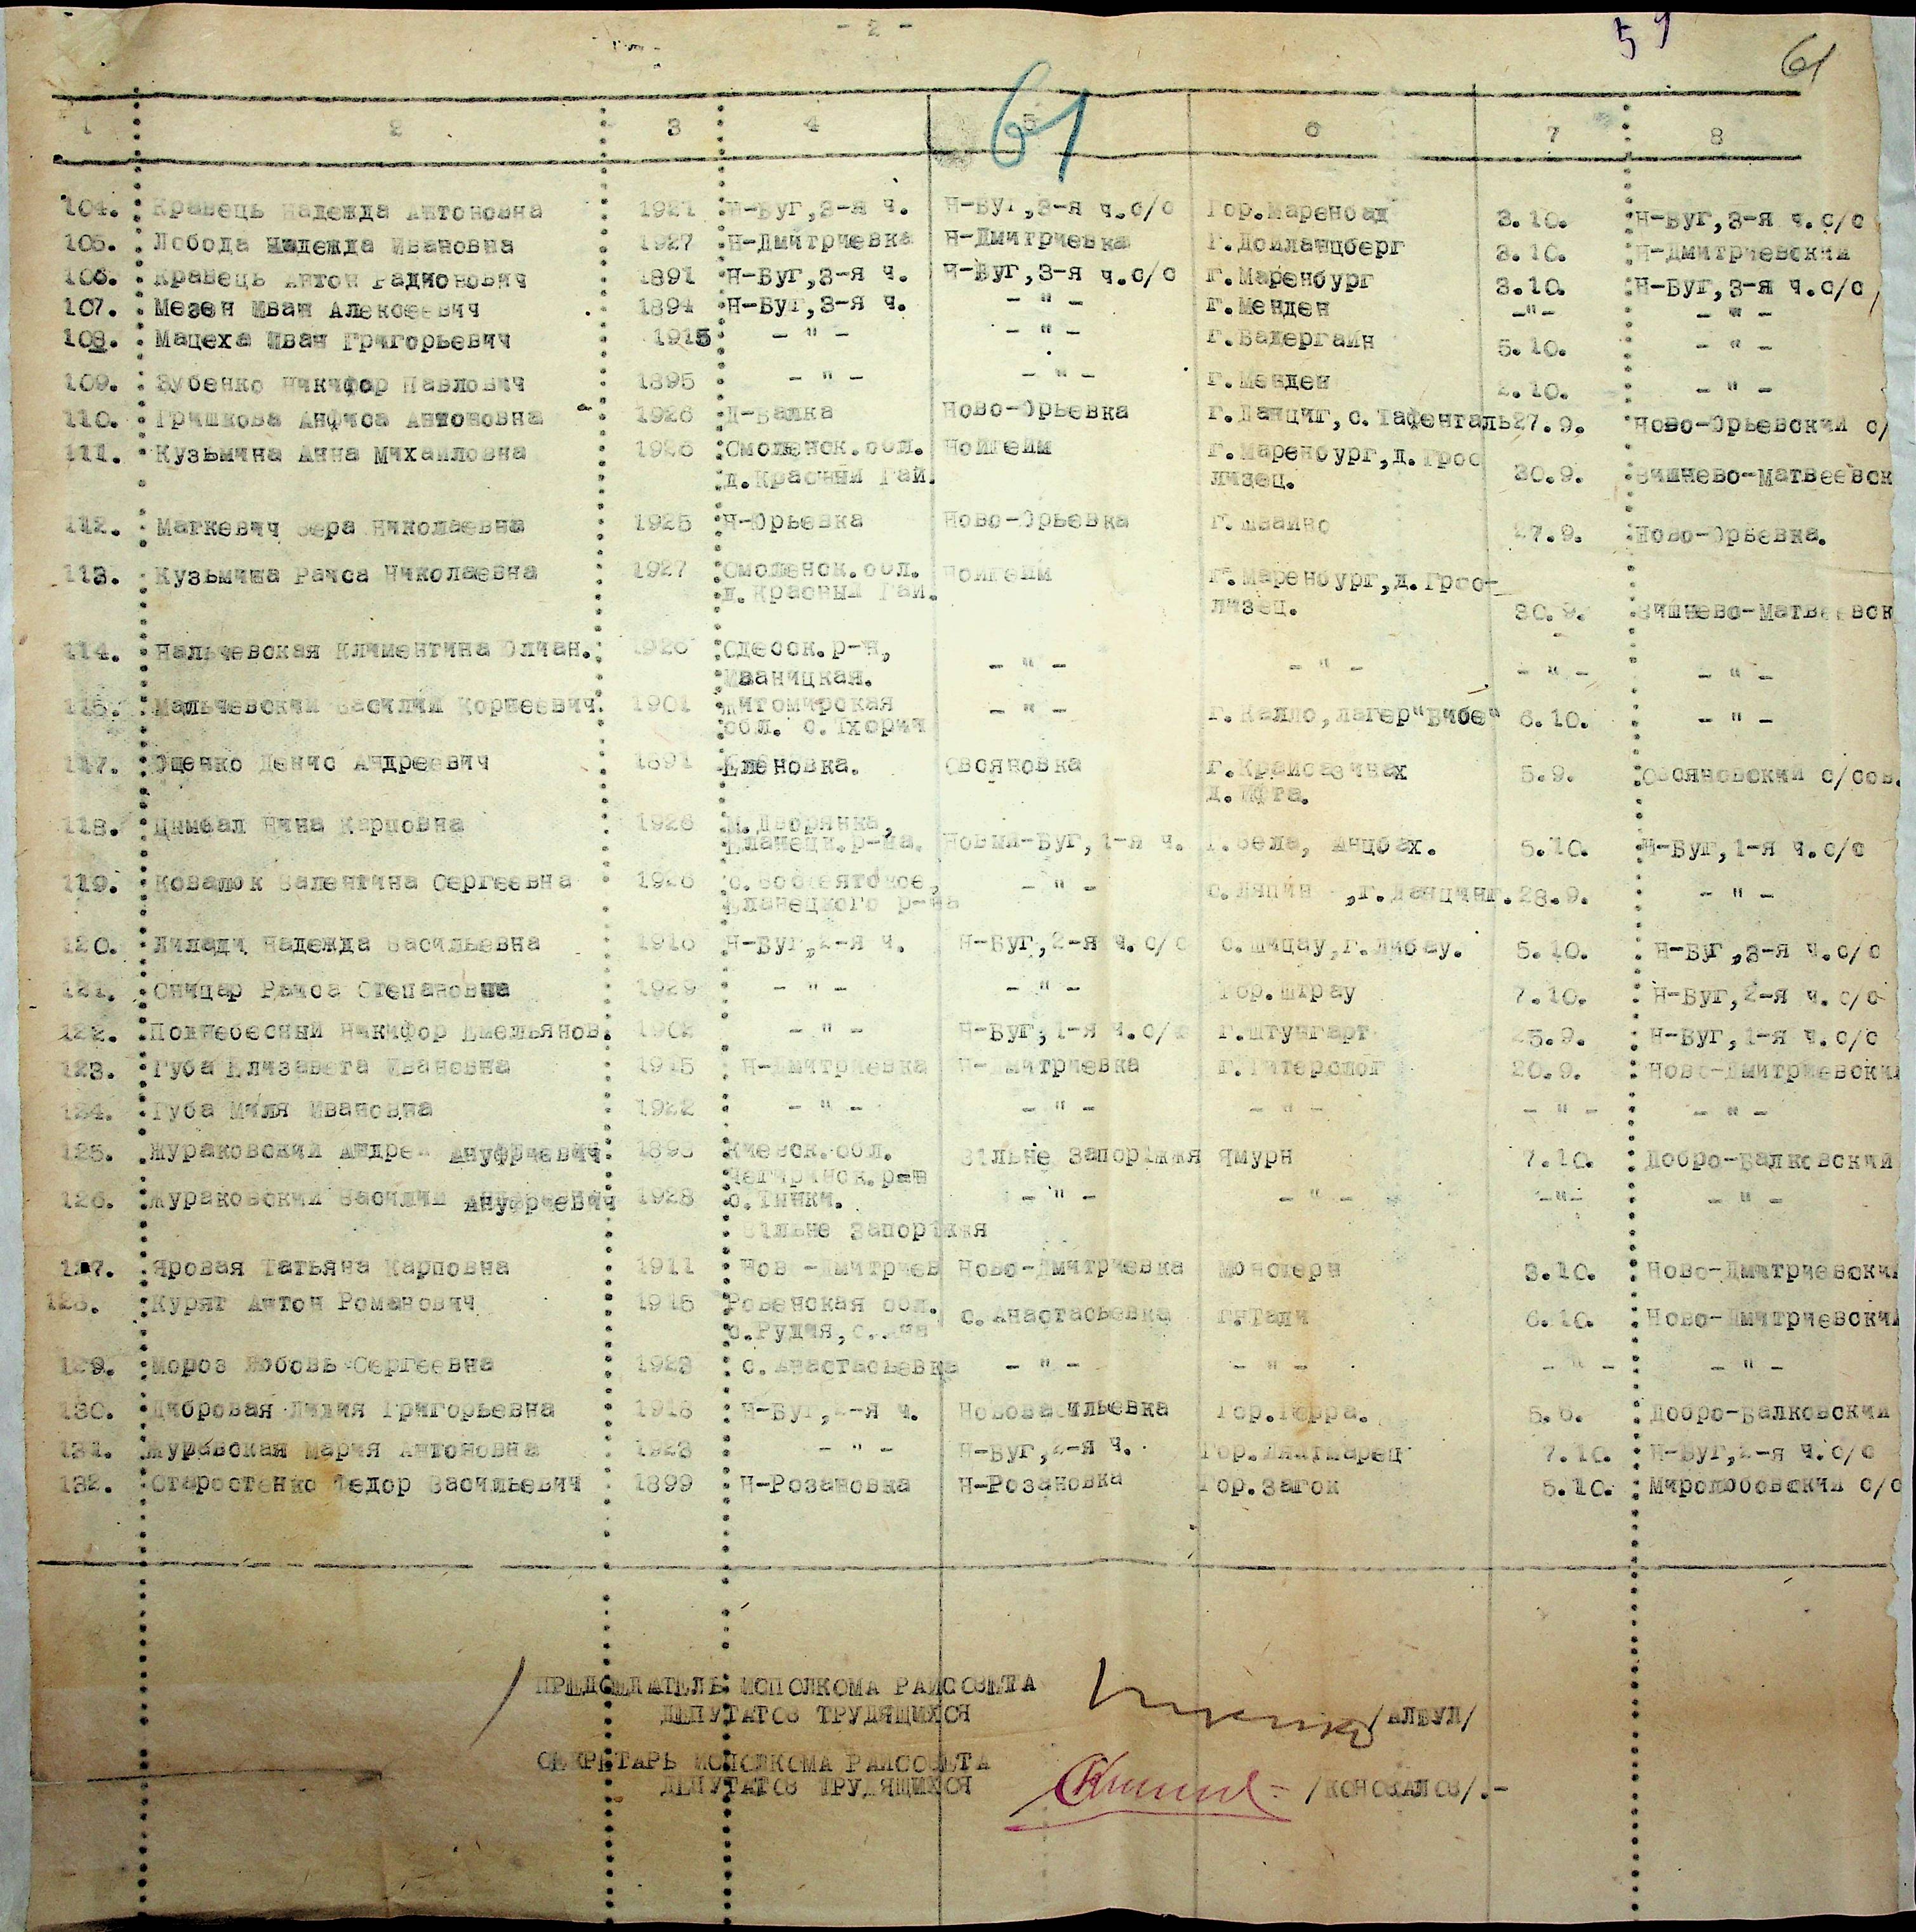 - 2 -
59
61
61
1 2 3 4 5 6 7 8
104. Кравець Надежда Антоновна 1921 Н-Буг,3-я ч. Н-Буг,3-я ч.с/с Гор.Маренбад 3.10. Н-Буг,3-я ч.с/с
105. Лобода Надежда Ивановна 1927 Н-Дмитриевка Н-Дмитриевка Г.Дойланцберг 3.10. Н-Дмитриевский
106. Кравець Антон Радионович 1891 Н-Буг,3-я ч. Н-Буг,3-я ч.с/с г.Маренбург 3.10. Н-Буг,3-я ч.с/с
107. Мезен Иван Алексеевич 1894 Н-Буг,3-я ч. - " - г.Менден -"- - " -
108. Мацеха Иван Григорьевич 1915 - " - - " - г.Вадергайн 5.10. - " -
109. Зубенко Никифор Павлович 1895 - " - - " - г.Менден 2.10. - " -
110. Гришкова Анфиса Антоновна 1926 Д-Балка Ново-Юрьевка г.Данциг,с.Тафенталь 27.9. Ново-Юрьевский с/
111. Кузьмина Анна Михайловна 1926 Смоленск.обл. Нойгейм г.Маренбург,д.Грос
д.Красный Гай. лизец. 30.9. Вишнево-Матвеевск
112. Маткевич Вера Николаевна 1925 Н-Юрьевка Ново-Юрьевка г.Швайно 27.9. Ново-Юрьевка.
113. Кузьмина Раиса Николаевна 1927 Смоленск.обл. Нойгейм г.Маренбург,д.Грос-
д.Красный Гай. лизец. 30.9. Вишнево-Матвеевск
114. Нальчевская Климентина Юлиан. 1926 Одесск.р-н,
Иваницкая. - " - - " - - " - - " -
115. Мальчевский Василий Корнеевич. 1901 Житомирская - " - г.Калло,лагер"Вибе" 6.10. - " -
обл. с.Тхорин
117. Ощенко Денис Андреевич 1891 Еленовка. Овсяновка г.Крайсазинах 5.9. Овсяновский с/сов.
д.Ифта.
118. Цымбал Нина Карповна 1926 М.Дворянка,
Еланецк.р-на. Новый-Буг,1-я ч. г.Вела, Анцбах. 5.10. Н-Буг,1-я ч.с/с
119. Ковалюк Валентина Сергеевна 1926 - " - с.Ляпин ,г.Данцинг. 28.9. - " -
Еланецкого р-на
120. Лилади Надежда Васильевна 1916 Н-Буг,2-я ч. Н-Буг,2-я ч.с/с с.Шицау,г.Либау. 5.10. Н-Буг,3-я ч.с/с
121. Оницар Раиса Степановна 1929 - " - - " - Гор.Штрау 7.10. Н-Буг,2-я ч.с/с
122. Поднебесный Никифор Емельянов. 1902 - " - Н-Буг,1-я ч.с/с г.Штутгарт 25.9. Н-Буг,1-я ч.с/с
123. Губа Елизавета Ивановна 1915 Н-Дмитриевка Н-Дмитриевка г.Гитерслог 20.9. Ново-Дмитриевский
124. Губа Миля Ивановна 1922 - " - - " - - " - - " - - " -
125. Жураковский Андрей Ануфриевич 1893 Киевск.обл. Вільне Запоріжжя Ямурн 7.10. Добро-Балковский
Чегиринск.р-н
126. Жураковский Василий Ануфриевич 1928 с.Тынки. - " - - " - -"- - " -
Вільне Запоріжжя
127. Яровая Татьяна Карповна 1911 Нов -Дмитриев Ново-Дмитриевка Монстерн 3.10. Ново-Дмитриевский
128. Курят Антон Романович 1915 Ровенская обл. с.Анастасьевка г.Итали 6.10. Ново-Дмитриевский
с.Рудня,
129. Мороз Любовь Сергеевна 1923 с.Анастасьевка - " - - " - - " - - " -
130. Диброва Лидия Григорьевна 1918 Н-Буг,2-я ч. Нововасильевка Гор.Герра. 5.6. Добро-Балковский
131. Журавская Мария Антоновна 1923 - " - Н-Буг,2-я ч. 7.10. Н-Буг,2-я ч.с/с
132. Старостенко Федор Васильевич 1899 Н-Розановка Н-Розановка Гор.Загок 5.10. Миролюбовский с/с
ПРЕДСЕДАТЕЛЬ ИСПОЛКОМА РАЙСОВЕТА
ДЕПУТАТОВ ТРУДЯЩИХСЯ /АЛБУЛ/
СЕКРЕТАРЬ ИСПОЛКОМА РАЙСОВЕТА
ДЕПУТАТОВ ТРУДЯЩИХСЯ /КОНОВАЛОВ/.-